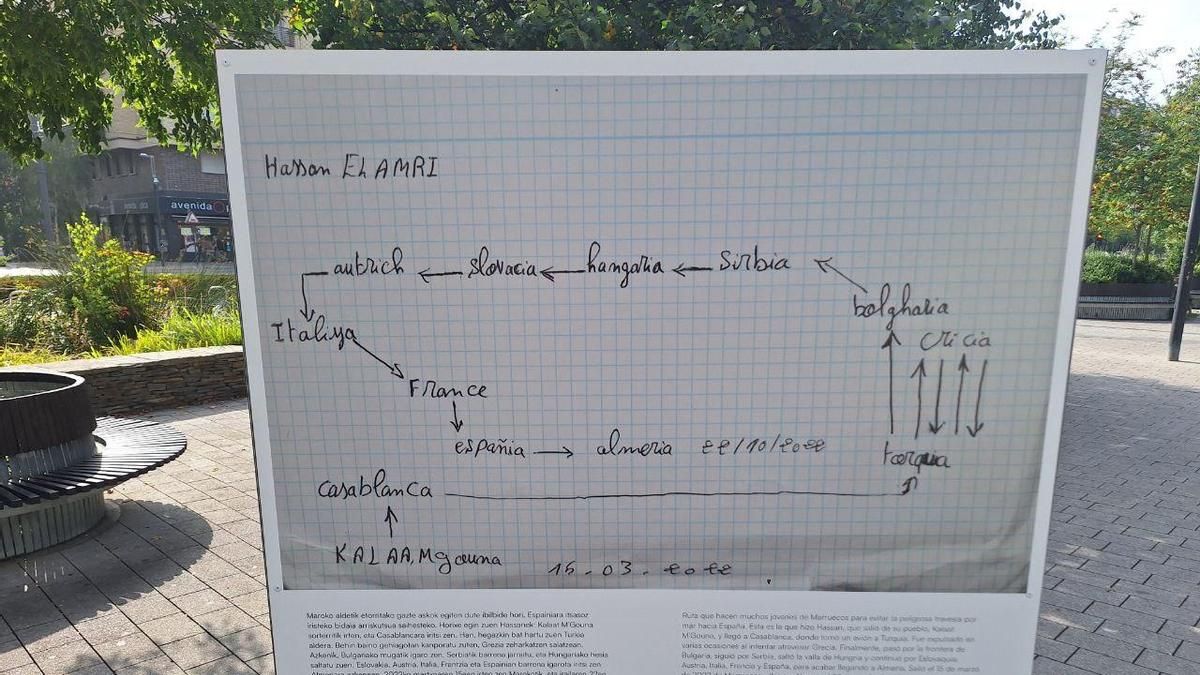 avenida
Hassan EL AMRI
autrich slovacia hangaria Sirbia
bolgharia
Cricia
Italiya
France
españia almeria 22/10/2022
torquia
casablanca
KALAA, Mgouna 15-03-2022
Maroko aldetik etorritako gazte askok egiten dute ibilbide hori, Espainiara itsasoz
iristeko bidaia arriskutsua saihesteko. Horixe egin zuen Hassanek: Kalaat M'Gouna
sorterritik irten, eta Casablancara iritsi zen. Han, hegazkin bat hartu zuen Turkia
aldera. Behin baino gehiagotan kanporatu zuten, Grezia zeharkatzen saiatzean.
Azkenik, Bulgariako mugatik igaro zen, Serbiatik barrena jarraitu, eta Hungariako hesia
saltatu zuen. Eslovakia, Austria, Italia, Frantzia eta Espainian barrena igarota iritsi zen
Ruta que hacen muchos jóvenes de Marruecos para evitar la peligrosa travesía por
mar hacia España. Esta es la que hizo Hassan, que salió de su pueblo, Kalaat
M'Gouna, y llegó a Casablanca, donde tomó un avión a Turquía. Fue expulsado en
varias ocasiones al intentar atravesar Grecia. Finalmente, pasó por la frontera de
Bulgaria, siguió por Serbia, saltó la valla de Hungría y continuó por Eslovaquia,
Austria, Italia, Francia y España, para acabar llegando a Almería. Salió el 15 de marzo